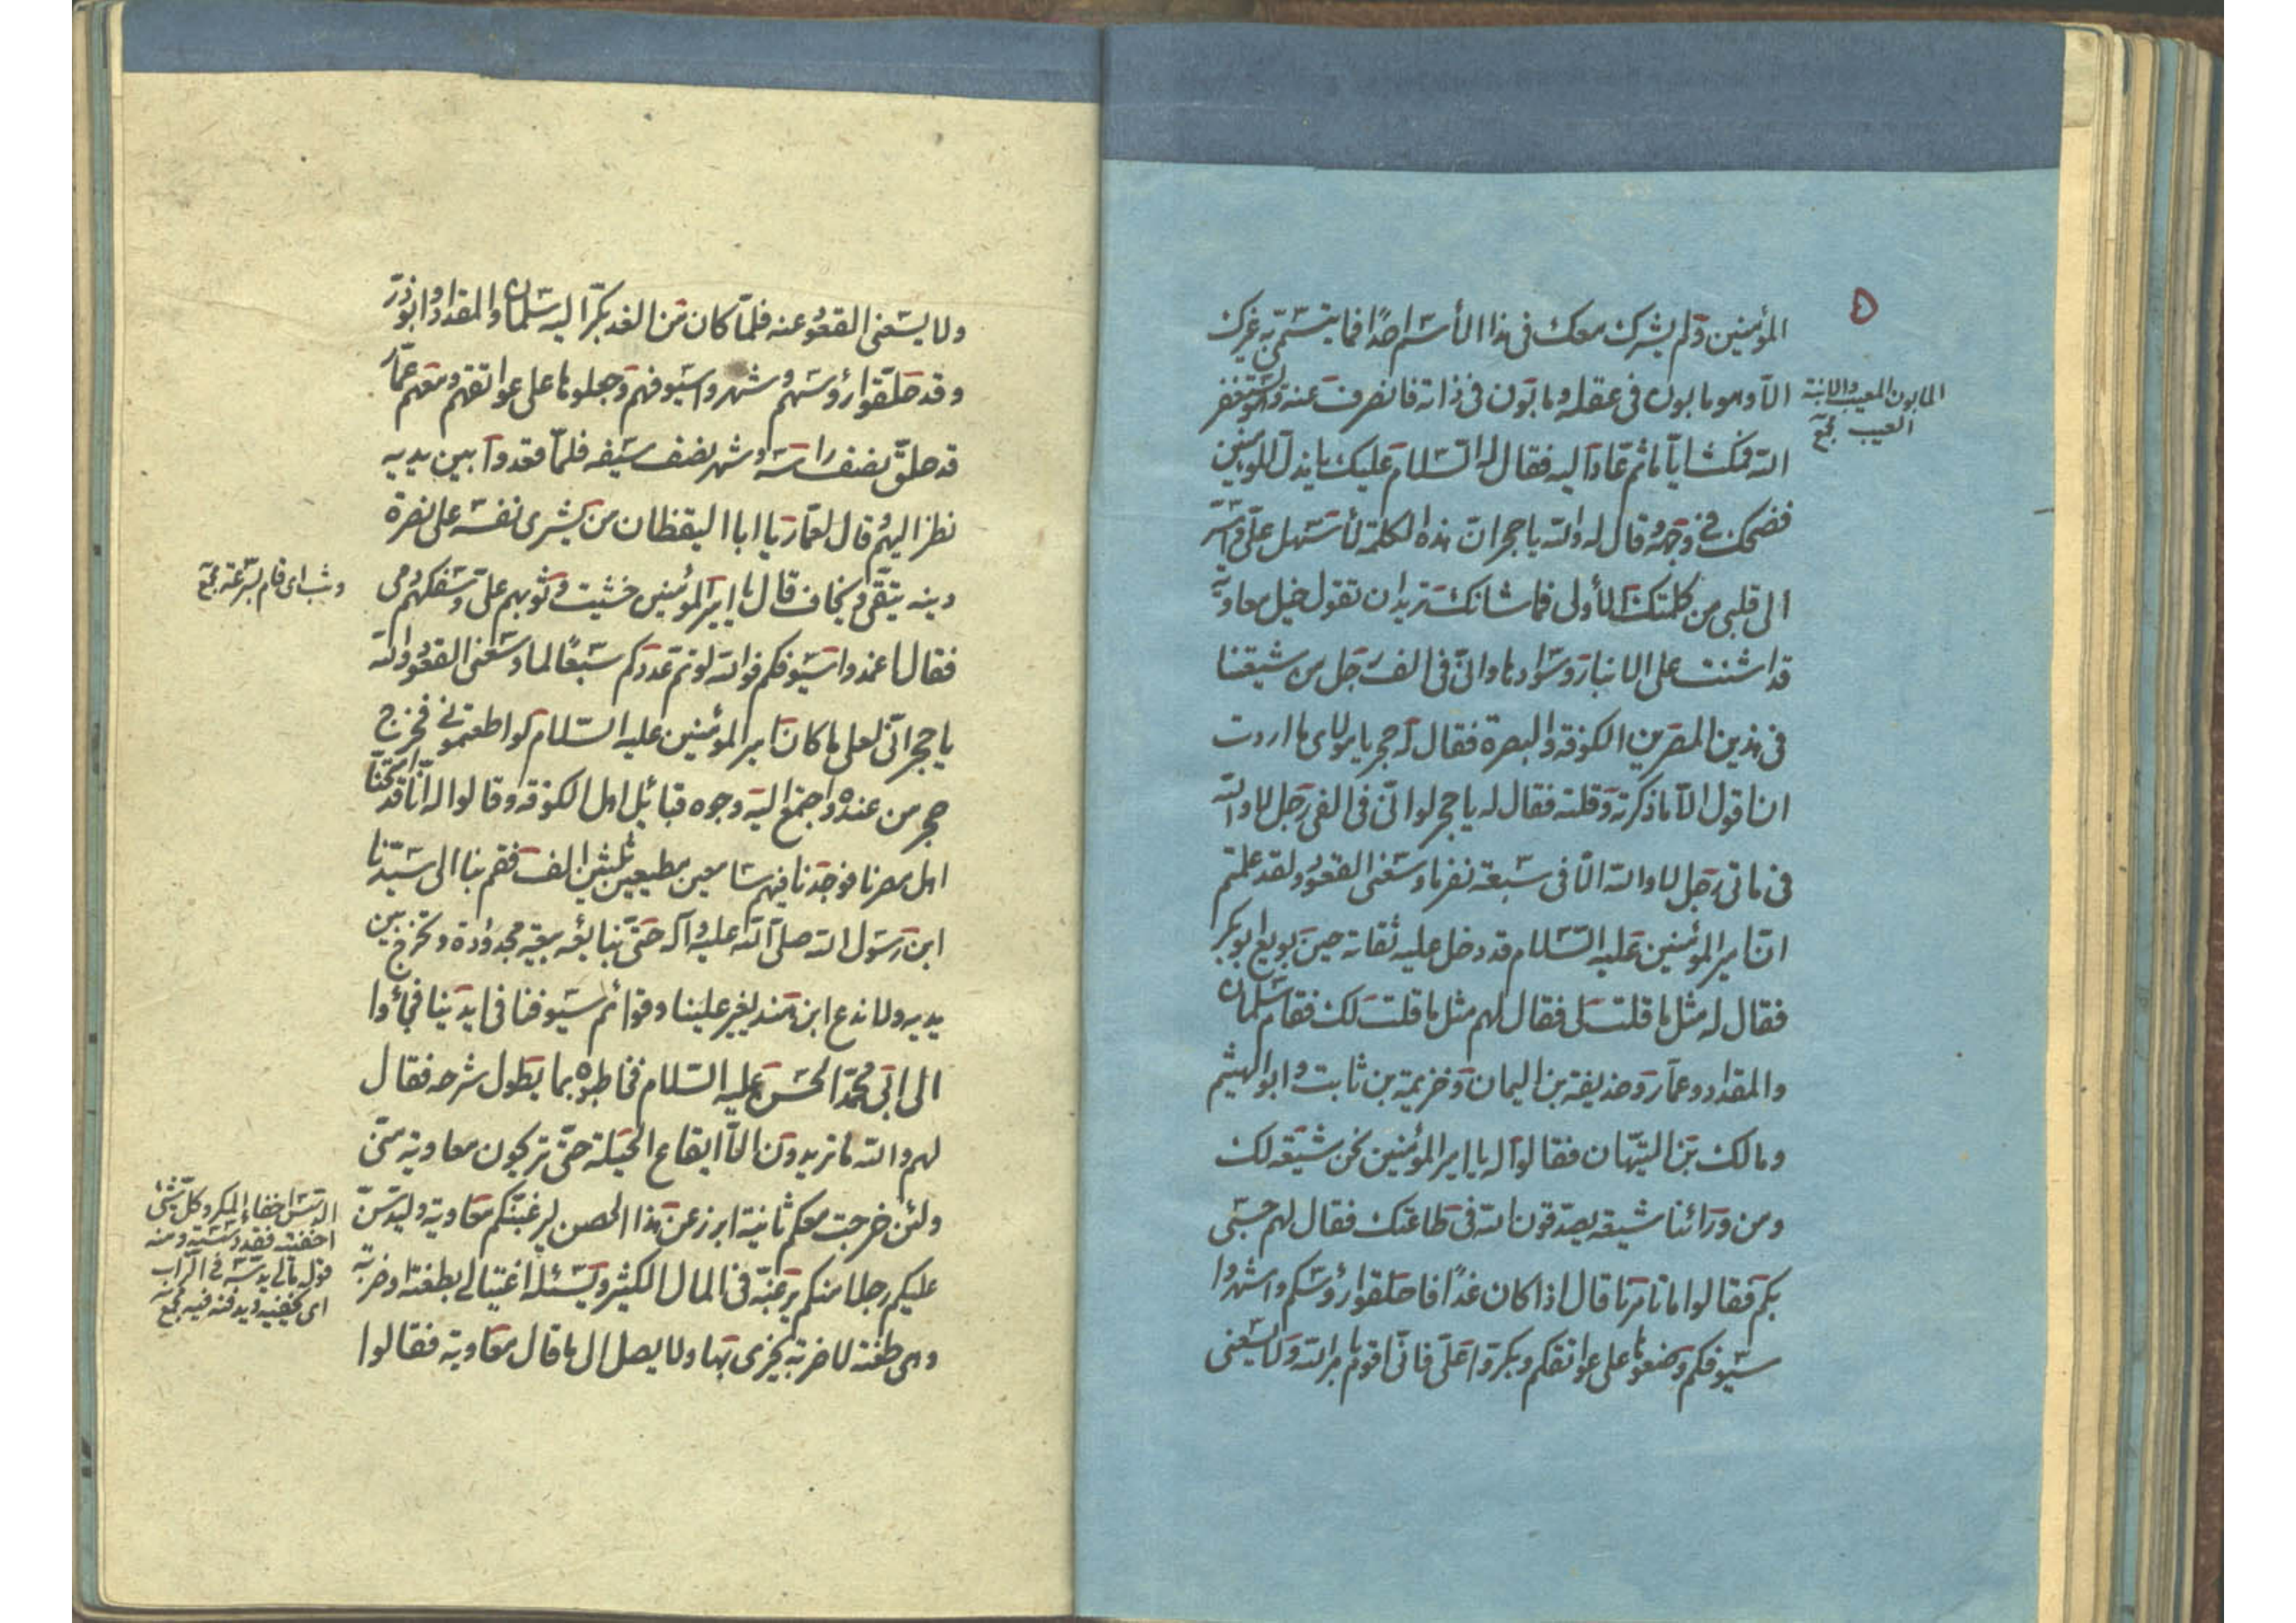 المؤمنين ولم يشرك معك في هذا الأسم احدًا فما يتسمّى به غيرك
الّا وهو مابون في عقله ومابون في ذاته فانصرف عنه وهو يستغفر
الله فمكث ايّاما ثم عاد اليه فقال له السّلام عليك يا مذلّ المؤمنين
فضحك في وجهه وقال له والله يا حجر انّ هذه الكلمة لأسهل علىّ واسّر
الى قلبي من كلمتك الأولى فما شانك تريد ان تقول خيل معاوية
قد اشنت على الانبار وسوادها وانّى فى الف رجل من شيعتنا
فى هذين المصرين الكوفه والبصرة فقال له حجر يا مولاى ما اردت
ان اقول الّا ما ذكرته وقلته فقال له يا حجر لو انّى فى الفى رجل لا والله
فى مائى رجل لا والله الّا فى سبعة نفر ما وسعنى القعود ولقد علمتم
انّ امير المؤمنين عليه السّلام قد دخل عليه ثقاته حين بويع ابو بكر
فقال له مثل ما قلت لى فقال لهم مثل ما قلت لك فقام سلمان
والمقداد وعمّار وحذيفة بن اليمان وخزيمة بن ثابت وابو الهيثم
ومالك بن التيّهان فقالوا له يا امير المؤمنين نحن شيعه لك
ومن ورائنا شيعه يصدّقون الله فى طاعتك فقال لهم حسبى
بكم فقالوا ما تامرنا قال اذا كان غدًا فاحلقوا رؤسكم واشهروا
سيوفكم وضعوها على عواتقكم وبكروا علىّ فانّى اقوم بامر الله ولا يسعنى
٥
المابون المعيب والابنة
العيب مجمع
ولا يسعنى القعود عنه فلمّا كان من الغد بكّر اليه سلمان والمقداد وابو ذرّ
وقد حلّقوا رؤسهم وشهروا سيوفهم وجعلوها على عواتقهم ومعهم عمّار
قد حلّق نصف راسه وشهر نصف سيفه فلمّا قعدوا بين يديه
نظر اليهم قال لعمّار يا ابا اليقظان من يشرى نفسه على نصرة
دينه يتّقى ويخاف قال يا امير المؤمنين خشيت وثوبهم علىّ وسفكهم دمى
فقال اغمدوا سيوفكم فوالله لو تم عددكم سبعًا لما وسعنى القعود والله
يا حجر انّى لعلى ما كان امير المؤمنين عليه السّلام لو اطعتمونى فخرج
حجر من عنده واجتمع اليه وجوه قبائل اهل الكوفه وقالوا له انّا قد امتحنّا
اهل مصرنا فوجدنا فيهم سامعين مطيعين ثلثين الف فقم بنا الى سيّدنا
ابن رسول الله صلى الله عليه وآله حتّى نبايعه بيعة مجدودة ونخرج بين
يديه ولا ندع ابن هند يغير علينا وقوائم سيوفنا فى ايدينا فجاؤا
الى ابى محمّد الحسن عليه السّلام فخاطبوه بما يطول شرحه فقال
لهم والله ما تريدون الّا ايقاع الحيلة حتّى تريحون معاوية منّى
ولئن خرجت معكم ثانية ابرز عن هذا الحصن ليرغبنّكم معاوية وليدسنّ
عليكم رجلا منكم يرغبّه فى المال الكثير ويسئله اغتيالى بطعنة او ضربة
وهى طعنة لا ضربة يخزى بها ولا يصل الى ما قال معاوية فقالوا
وثب اى قام بسرعة مجمع
الدسّ اخفاء المكر وكلّ شئ
اخفيته فقد دسسته ومنه
قوله تعالى يدسّه فى التّراب
اى يخفيه ويدفنه فيه مجمع